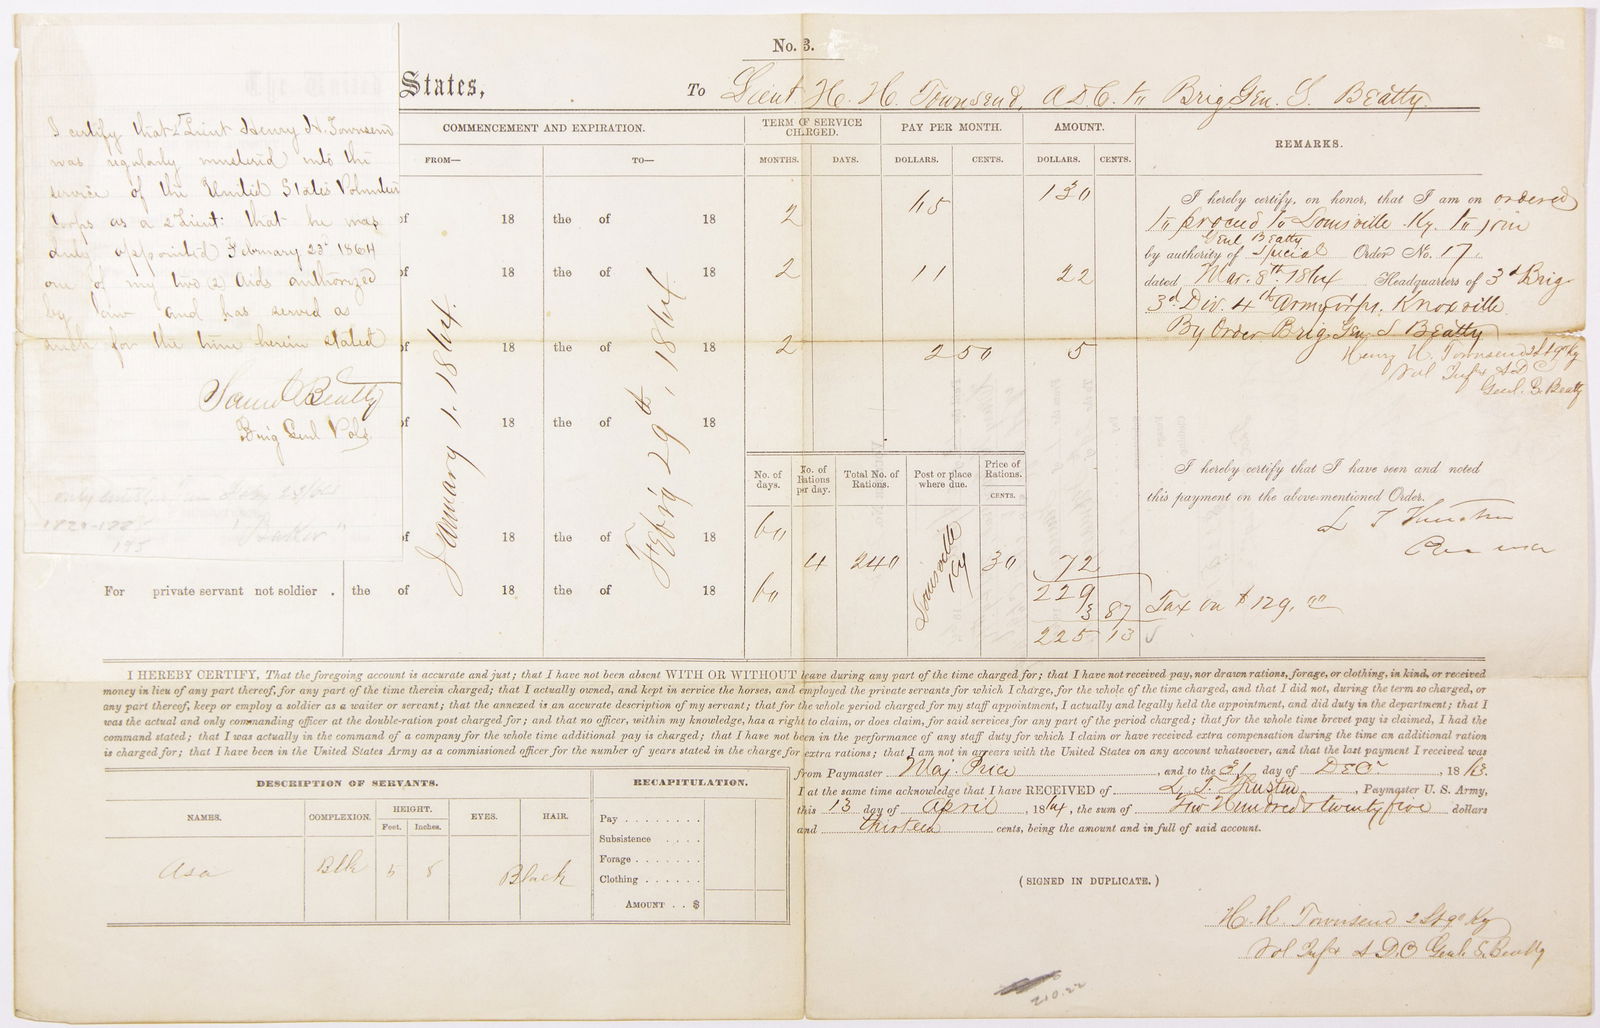 No. 3.
States, To Lieut. H. H. Townsend, A D C. to Brig Gen. S. Beatty.
I certify that 2d Lieut Henry H. Townsend
was regularly mustered into the
service of the United States Volunteer
Corps as a 2 Lieut: that he was
duly appointed February 23d 1864
one of my two (2) Aids authorized
by law and has served as
such for the time herein stated
Saml Beatty
Brig Genl Vols.
"Barker"
COMMENCEMENT AND EXPIRATION. TERM OF SERVICE CHARGED. PAY PER MONTH. AMOUNT. REMARKS.
FROM— TO— MONTHS. DAYS. DOLLARS. CENTS. DOLLARS. CENTS.
of 18 the of 18 2 65 130
of 18 the of 18 2 11 22
of 18 the of 18 2 2 50 5
of 18 the of 18
January 1. 1864.
Feb'y 29th, 1864.
I hereby certify, on honor, that I am on ordered
to proceed to Louisville Ky. to join
Genl Beatty
by authority of Special Order No. 17.
dated Mar. 8th 1864 Headquarters of 3d Brig
3d Div. 4th Army Corps. Knoxville
By Order Brig Gen S Beatty
Henry H. Townsend 2 Lt 9th Ky
Vol Inf & A D C
Genl. S. Beatty
No. of days. No. of Rations per day. Total No. of Rations. Post or place where due. Price of Rations. CENTS.
of 18 the of 18 60
4 240 Louisville Ky 30 72
For private servant not soldier . the of 18 the of 18 60
229
3 87 Tax on $129.00
225 13
I hereby certify that I have seen and noted
this payment on the above-mentioned Order.
I HEREBY CERTIFY, That the foregoing account is accurate and just; that I have not been absent WITH OR WITHOUT leave during any part of the time charged for; that I have not received pay, nor drawn rations, forage, or clothing, in kind, or received
money in lieu of any part thereof, for any part of the time therein charged; that I actually owned, and kept in service the horses, and employed the private servants for which I charge, for the whole of the time charged, and that I did not, during the term so charged, or
any part thereof, keep or employ a soldier as a waiter or servant; that the annexed is an accurate description of my servant; that for the whole period charged for my staff appointment, I actually and legally held the appointment, and did duty in the department; that I
was the actual and only commanding officer at the double-ration post charged for; and that no officer, within my knowledge, has a right to claim, or does claim, for said services for any part of the period charged; that for the whole time brevet pay is claimed, I had the
command stated; that I was actually in the command of a company for the whole time additional pay is charged; that I have not been in the performance of any staff duty for which I claim or have received extra compensation during the time an additional ration
is charged for; that I have been in the United States Army as a commissioned officer for the number of years stated in the charge for extra rations; that I am not in arrears with the United States on any account whatsoever, and that the last payment I received was
from Paymaster Maj. Price , and to the 31 day of DEC. , 1863.
I at the same time acknowledge that I have RECEIVED of L. T. Thustin , Paymaster U. S. Army,
this 13 day of April , 1864 , the sum of Two Hundred & twenty five dollars
and thirteen cents, being the amount and in full of said account.
DESCRIPTION OF SERVANTS.
NAMES. COMPLEXION. HEIGHT. EYES. HAIR.
Feet. Inches.
Asa Blk 5 8 Black
RECAPITULATION.
Pay . . . . . . . .
Subsistence . . . .
Forage . . . . . . .
Clothing . . . . . .
AMOUNT . . $
(SIGNED IN DUPLICATE.)
H. H. Townsend 2 Lt 9th Ky
Vol Inf & A D. C Genl. S. Beatty
210.22